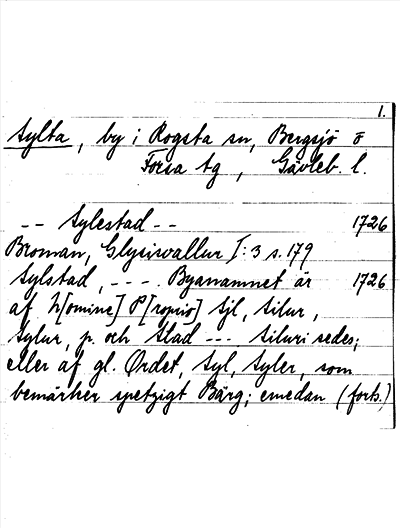 1.
Sylta, by i Rogsta sn, Bergsjö o
Forsa tg, Gävleb. l.
-- Sylestad -- 1726
Broman, Glysisvallur I:3 s. 179
Sylstad, ---. Byanamnet är 1726
af N[omine] P[roprio] Sjl, Silur,
Sylur, p. och Stad --- Siluri sedes;
eller af gl. Ordet, Syl, Syler, som
bemärker spetzigt Bärg; emedan (forts.)